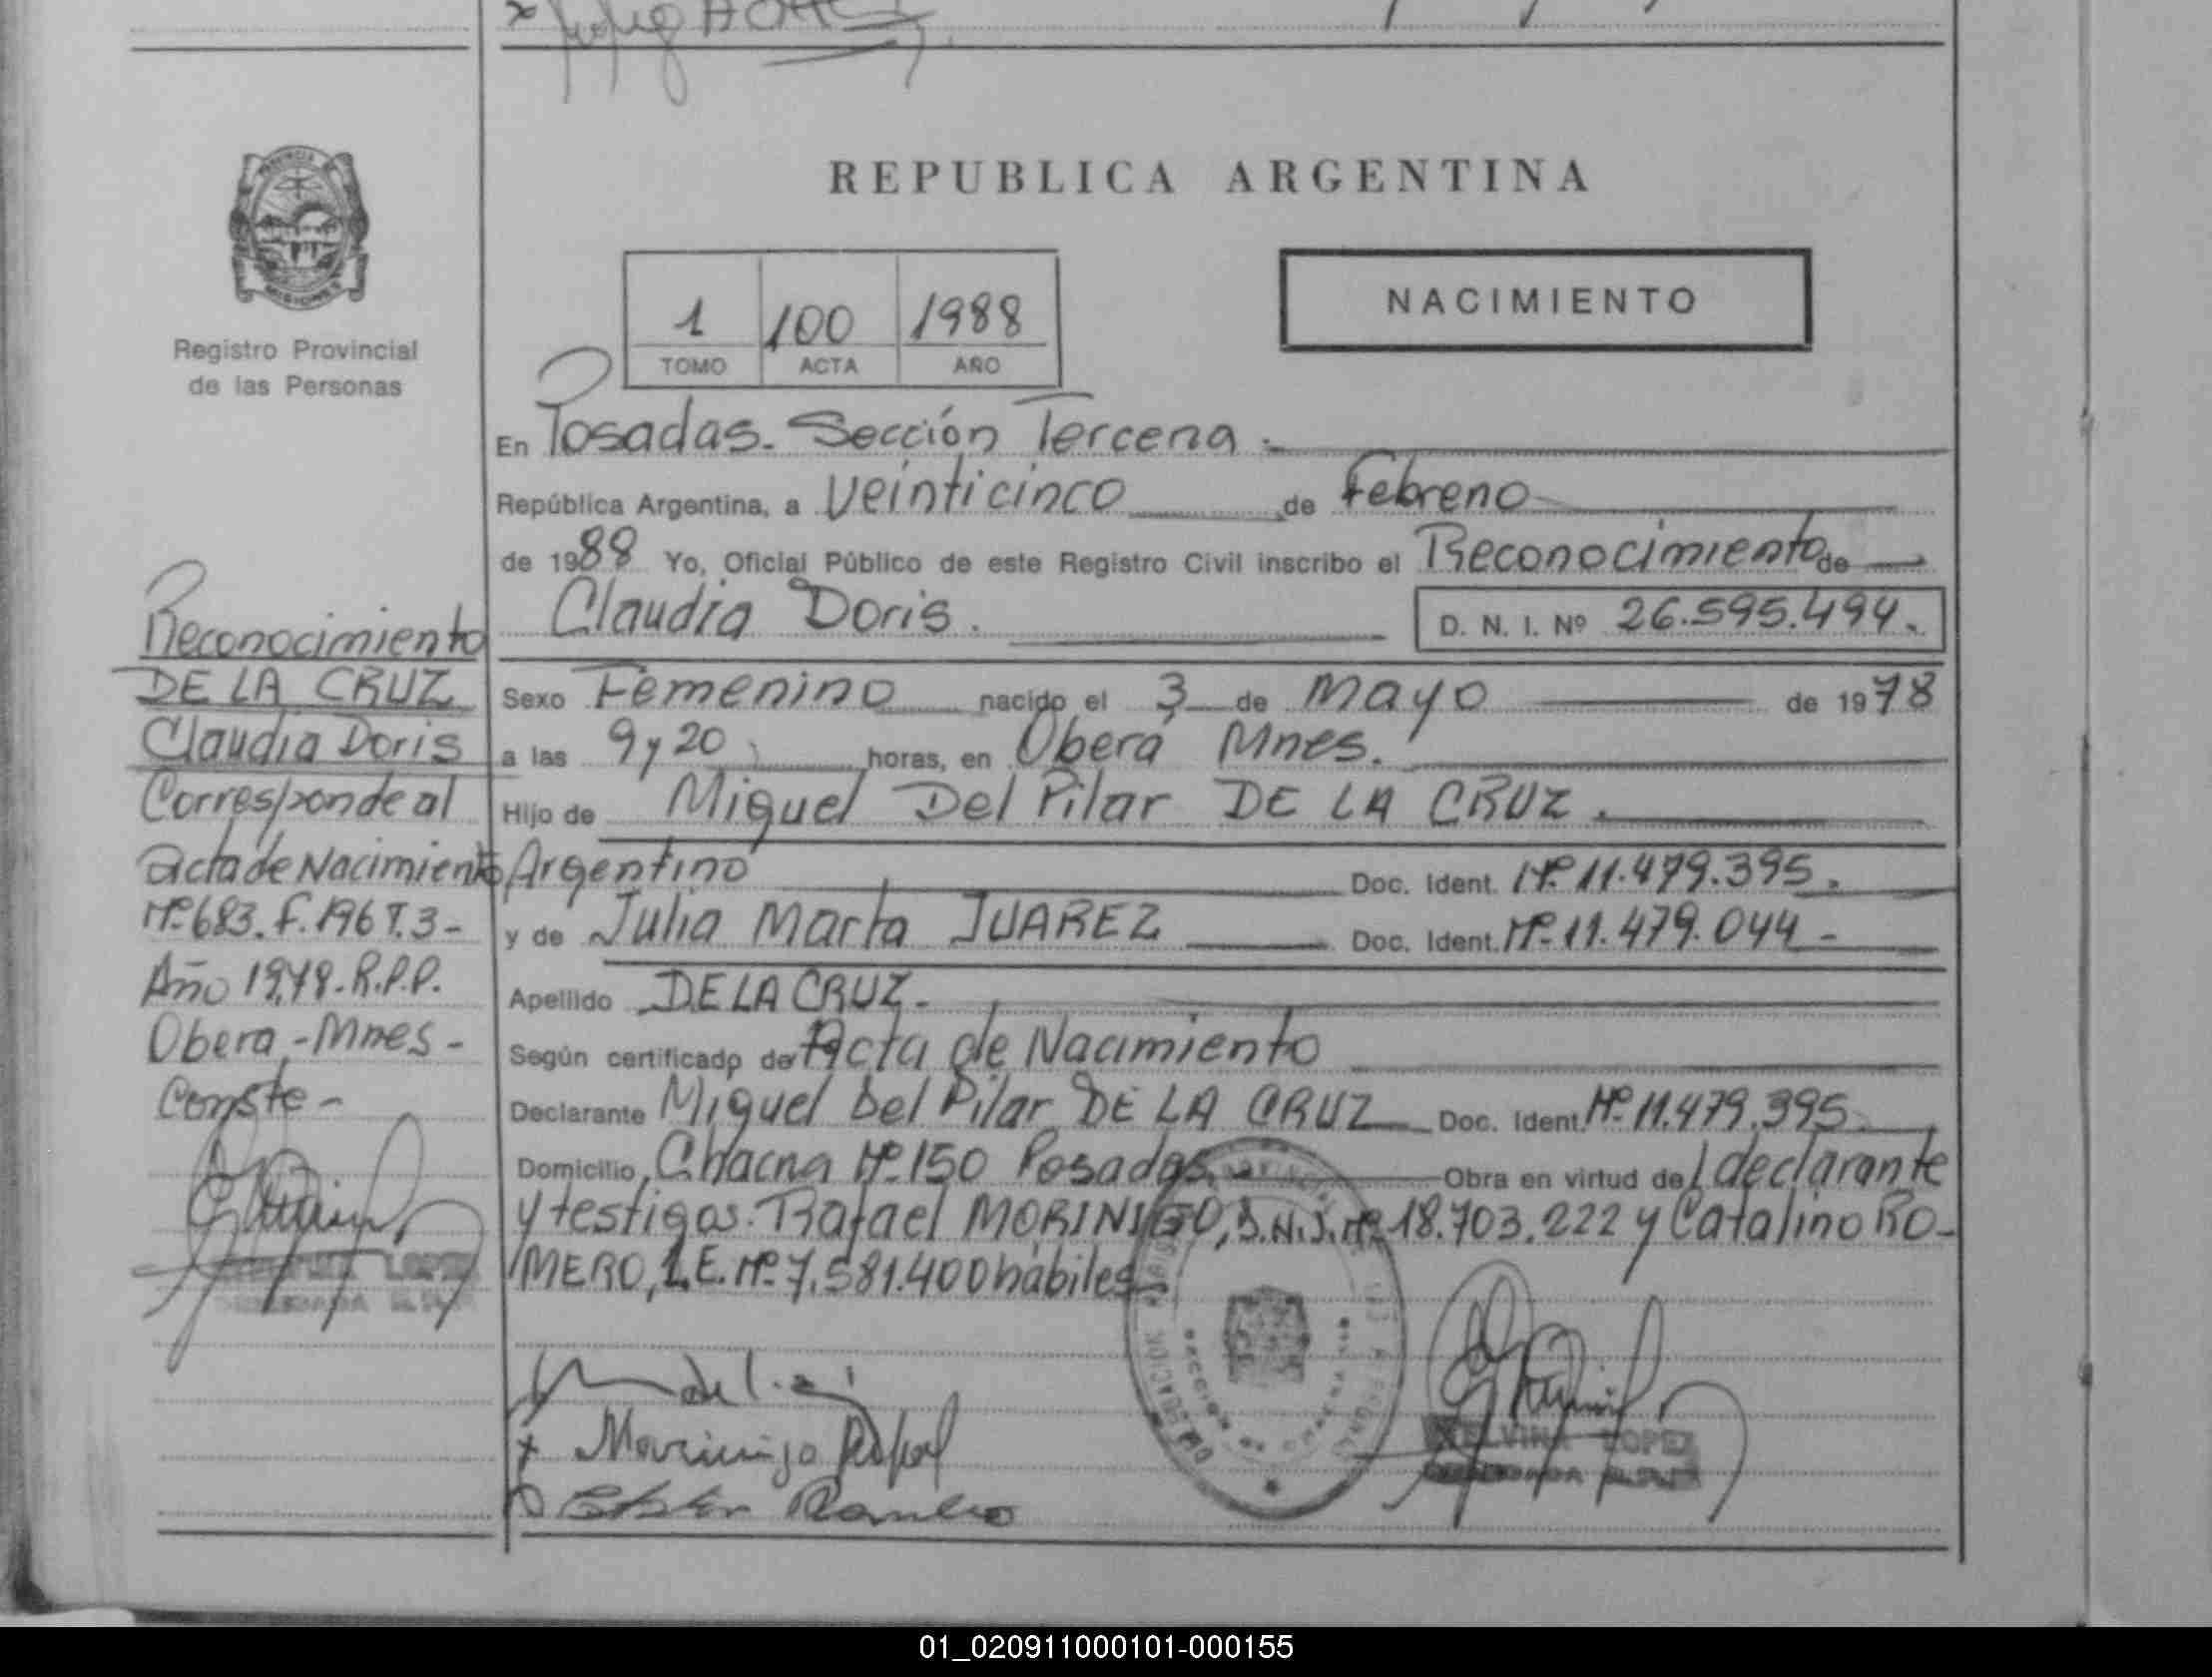 REPUBLICA ARGENTINA
1 100 1988
TOMO ACTA AÑO
NACIMIENTO
MISIONES
Registro Provincial
de las Personas
Reconocimiento
DE LA CRUZ
Claudia Doris
Corresponde al
acta de Nacimiento
Nº 683. F. 196 T. 3-
Año 1978. R.P.P.
Obera,-Mnes-
Conste-
LOPEZ
En Posadas. Sección Tercera.
República Argentina, a Veinticinco de Febrero
de 1988 Yo, Oficial Público de este Registro Civil inscribo el Reconocimiento de
Claudia Doris. D. N. I. Nº 26.595.494.
Sexo Femenino nacido el 3 de Mayo de 1978
a las 9 y 20 horas, en Oberá Mnes.
Hijo de Miguel Del Pilar DE LA CRUZ.
Argentino Doc. Ident. Nº 11.479.395.
y de Julia Marta JUAREZ Doc. Ident. Nº 11.479.044-
Apellido DE LA CRUZ.
Según certificado de Acta de Nacimiento
Declarante Miguel Del Pilar DE LA CRUZ Doc. Ident. Nº 11.479.395
Domicilio, Chacra Nº 150 Posadas Obra en virtud del declarante
y testigos. Rafael MORINIGO, D.N.I. Nº 18.703.222 y Catalino RO-
MERO, L.E. Nº 7.581.400 hábiles
Morinigo Rafael
ELVINA LOPEZ
01_020911000101-000155